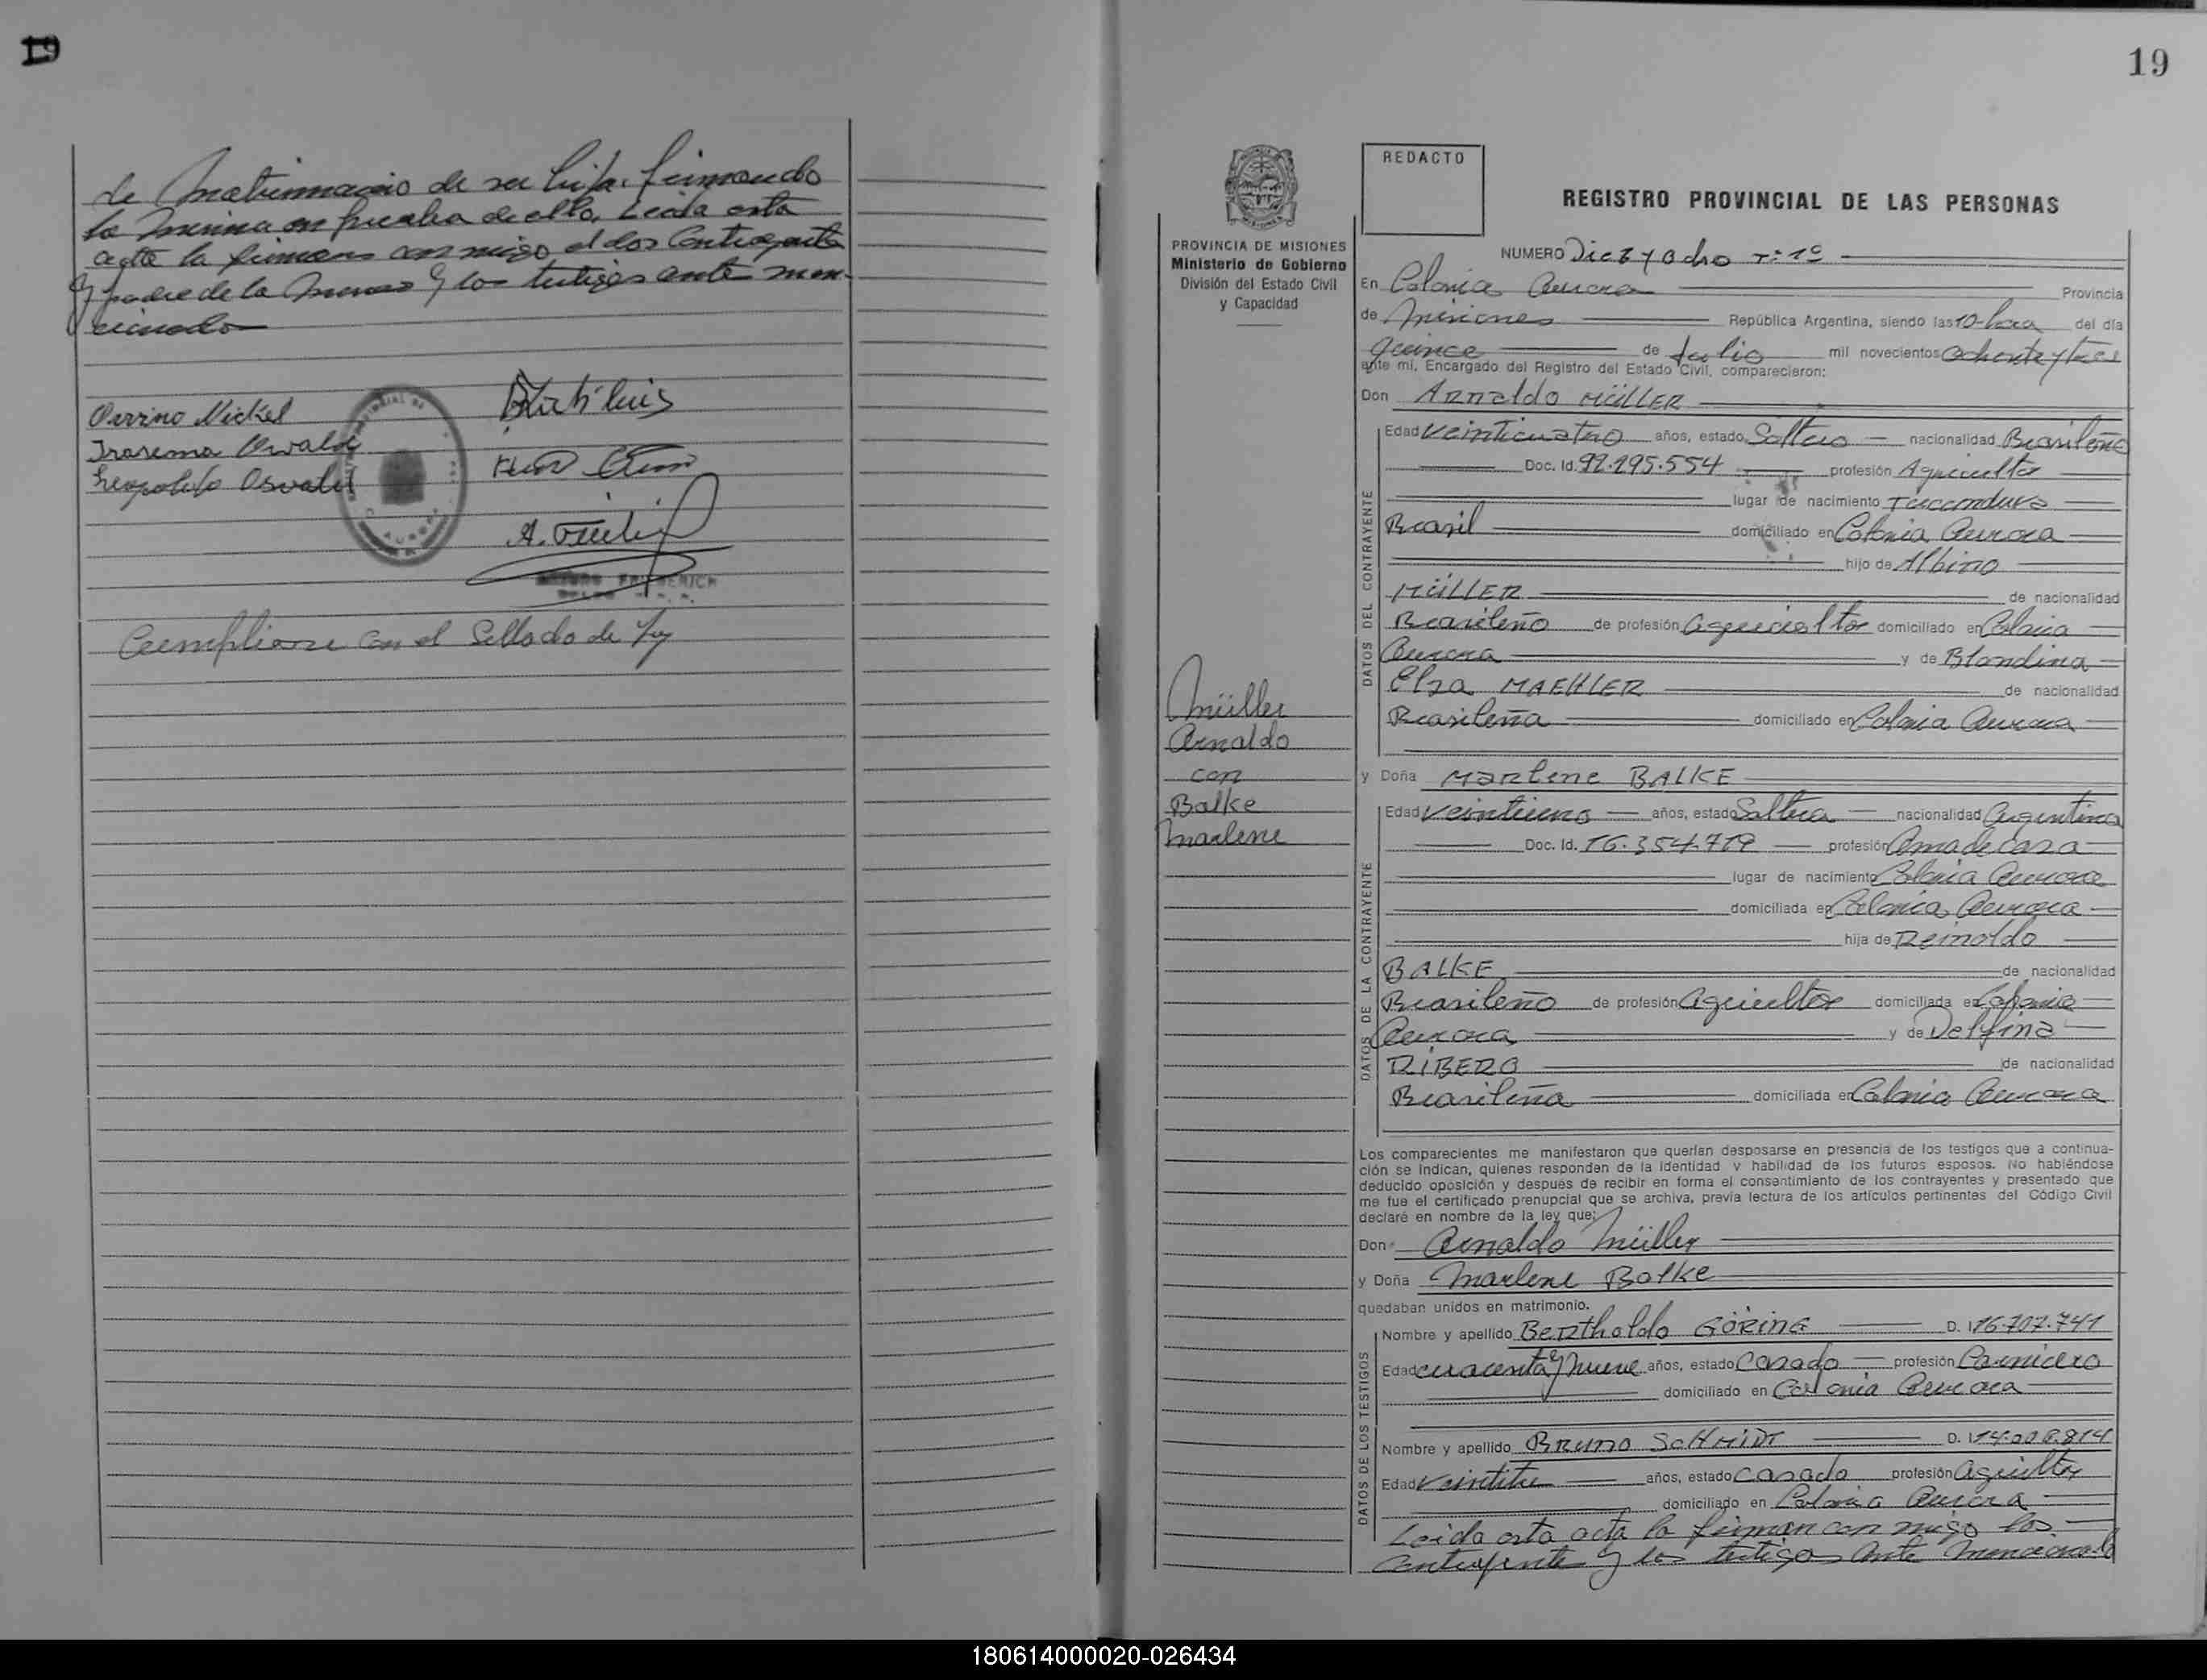 19
de Matrimonio de su hija firmando
la misma en prueba de ello, Leida esta
acta la firman con migo, el dos Contrayente
y padre de la menor y los testigos ante men-
cionado
Nickel
Irasema Oswald
Leopoldo Osvald
Cumpliose con el Sellado de Ley
19
REDACTO
REGISTRO PROVINCIAL DE LAS PERSONAS
PROVINCIA DE MISIONES
Ministerio de Gobierno
División del Estado Civil
y Capacidad
NUMERO Diez y Ocho T: 1º
En Colonia Aurora Provincia
de Misiones República Argentina, siendo las 10-hora del día
quince de Julio mil novecientos Ochenta y tres
ante mí, Encargado del Registro del Estado Civil, comparecieron:
Don Arnaldo MüLLER
DATOS DEL CONTRAYENTE
Edad Veinticuatro años, estado Soltero nacionalidad Brasileño
Doc. Id. 92.295.554 profesión Agricultor
lugar de nacimiento Tucunduva
Brasil domiciliado en Colonia Aurora
hijo de Albino
MüLLER de nacionalidad
Brasileño de profesión agricultor domiciliado en Colonia
Aurora y de Blondina
Elsa MAEHLER de nacionalidad
Brasileña domiciliado en Colonia Aurora
Müller
Arnaldo
con
Balke
Marlene
y Doña Marlene BALKE
DATOS DE LA CONTRAYENTE
Edad Veintiuno años, estado Soltera nacionalidad Argentina
Doc. Id. 16.354.719 profesión Ama de Casa
lugar de nacimiento Colonia Aurora
domiciliada en Colonia Aurora
hija de Reinoldo
BALKE de nacionalidad
Brasileño de profesión agricultor domiciliada en Colonia
Aurora y de Delfina
RIBERO de nacionalidad
Brasileña domiciliada en Colonia Aurora
Los comparecientes me manifestaron que querían desposarse en presencia de los testigos que a continua-
ción se indican, quienes responden de la identidad y habilidad de los futuros esposos. No habiéndose
deducido oposición y después de recibir en forma el consentimiento de los contrayentes y presentado que
me fue el certificado prenupcial que se archiva, previa lectura de los artículos pertinentes del Código Civil
declaré en nombre de la ley que:
Don Arnaldo Müller
y Doña Marlene Balke
quedaban unidos en matrimonio.
DATOS DE LOS TESTIGOS
Nombre y apellido Bertholdo GÖRING D. I. 16.707.741
Edad cuarenta y nueve años, estado Casado profesión Carnicero
domiciliado en Colonia Aurora
Nombre y apellido Bruno SCHMIDT D. I. 14.008.814
Edad años, estado Casado profesión agricultor
domiciliado en Colonia Aurora
Leida esta acta la firman con migo los
Contrayente y los testigos ante mencionado
180614000020-026434